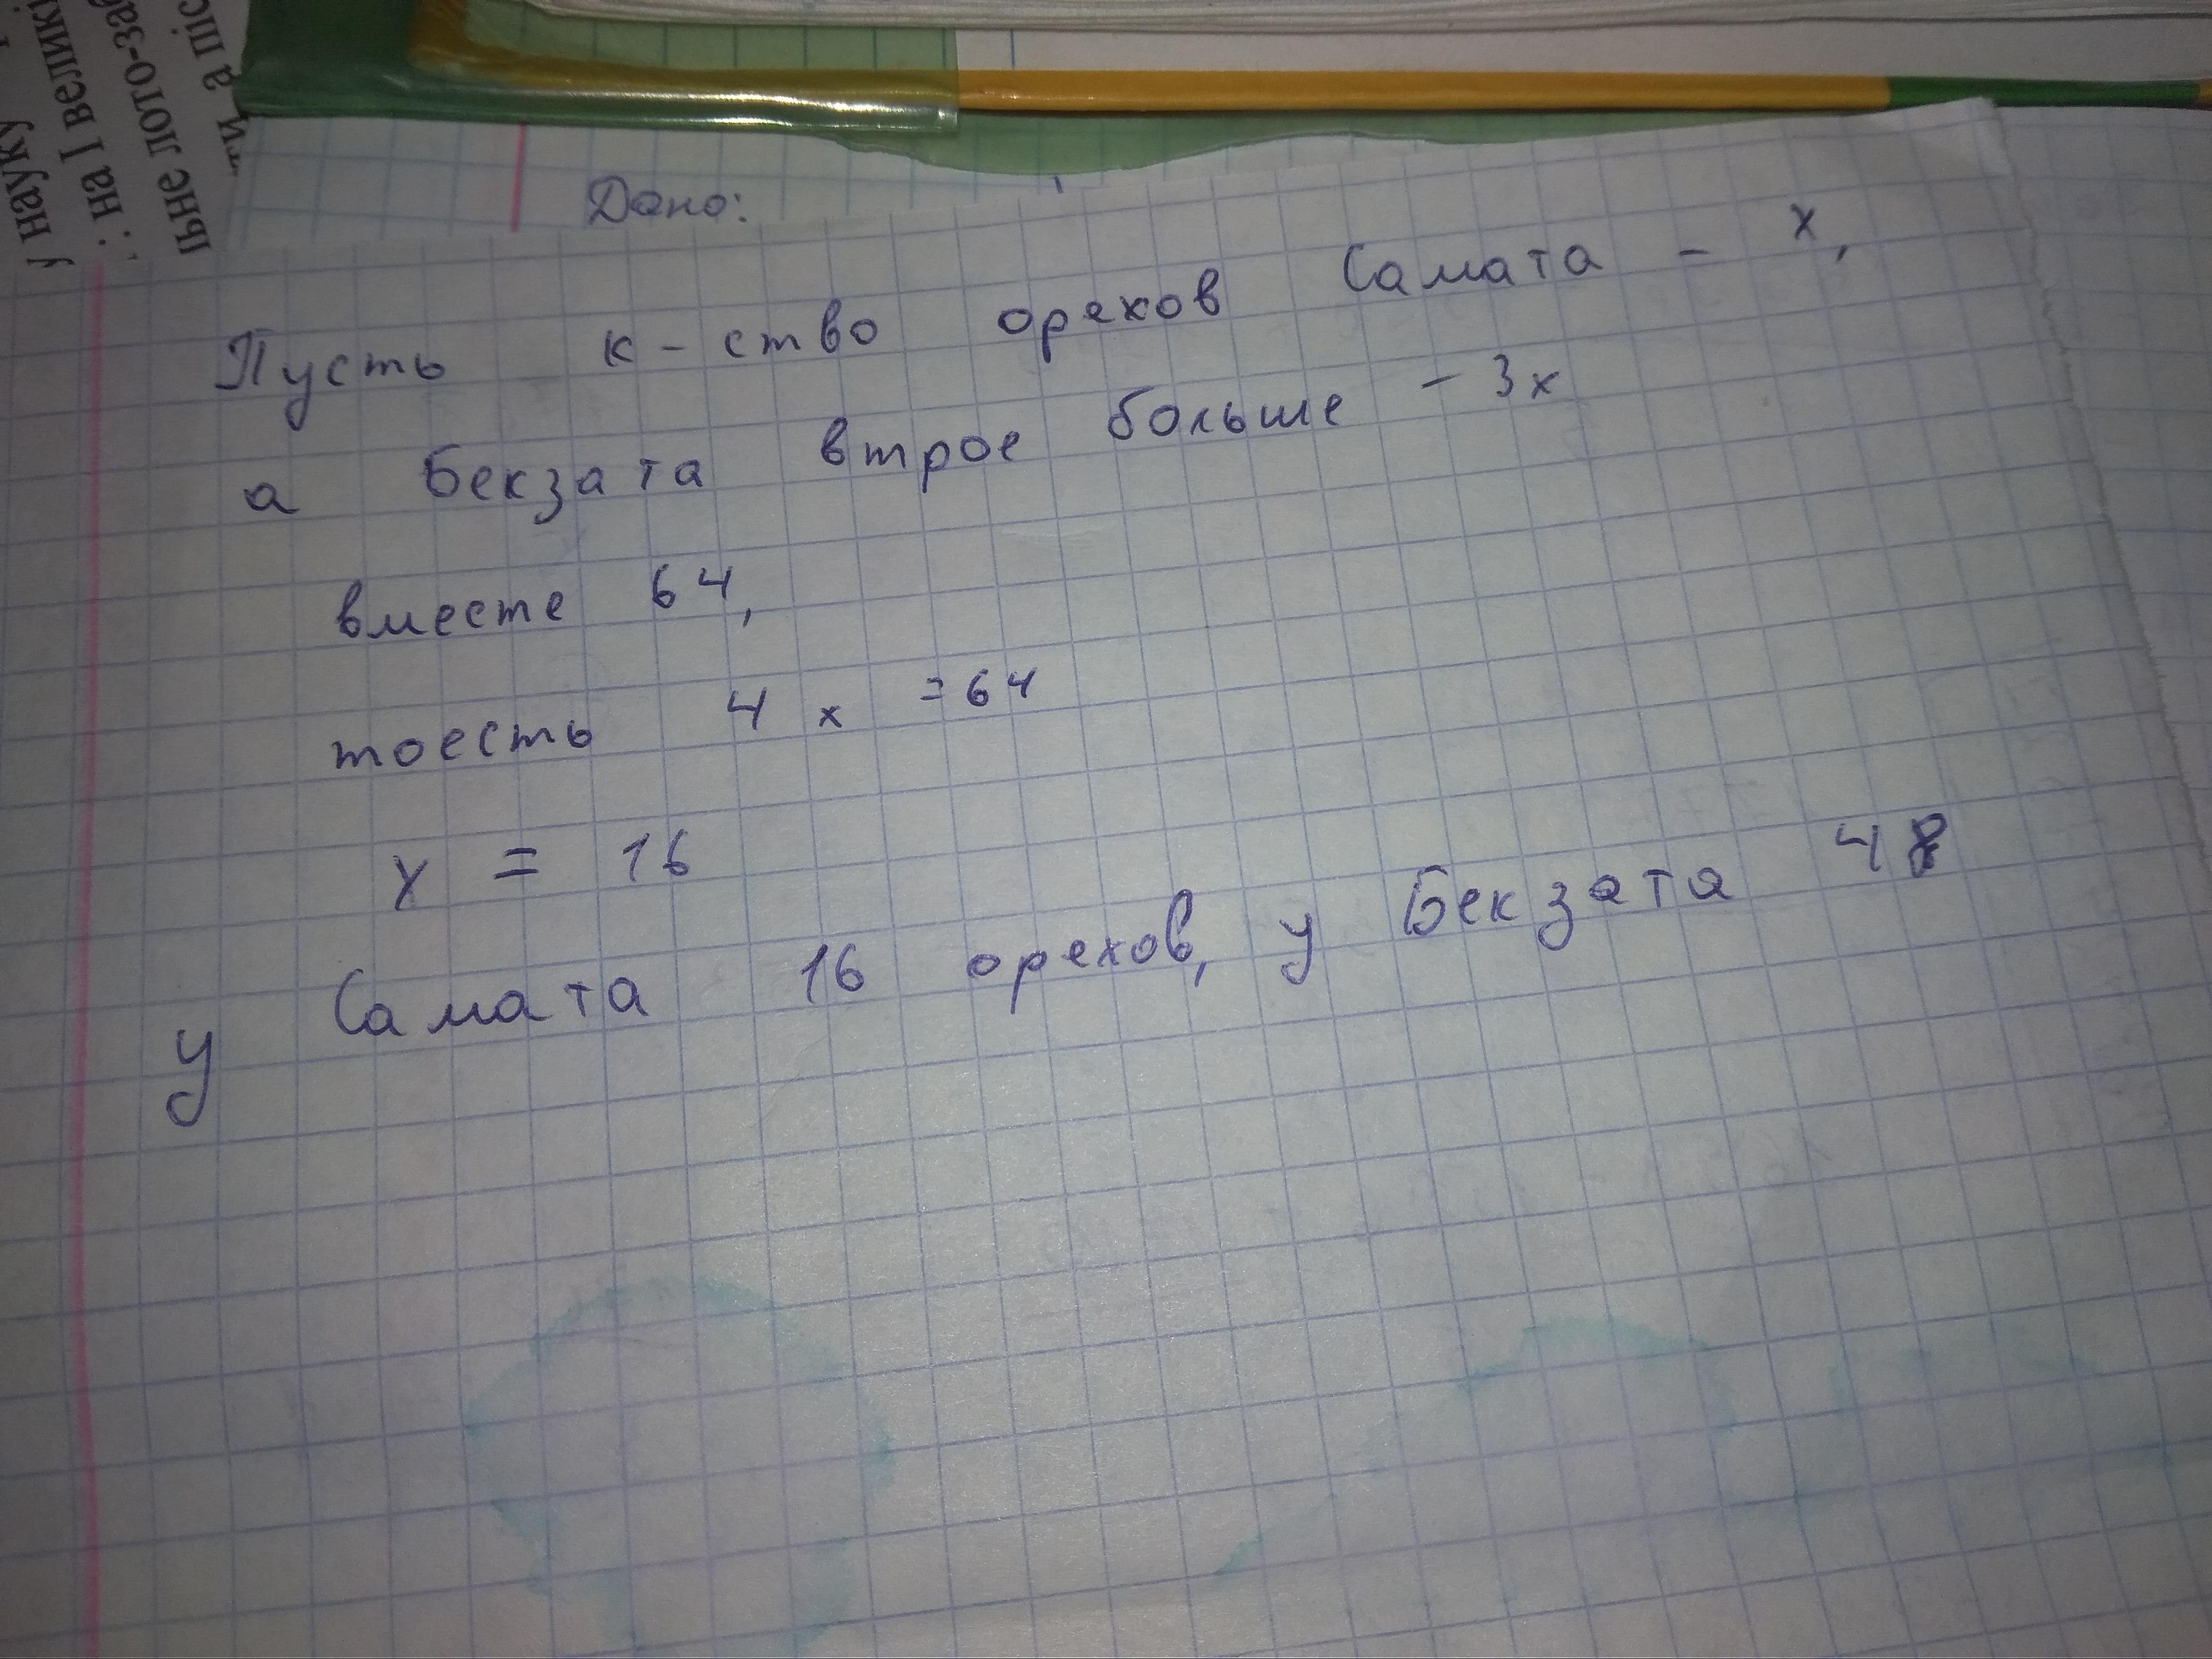 у науку
: на І великі
ьне лото-заб
ти, а піс
Дано:
Пусть к-ство орехов Самата - х,
а Бекзата втрое больше - 3х
вместе 64,
тоесть 4х = 64
х = 16
у Самата 16 орехов, у Бекзата 48